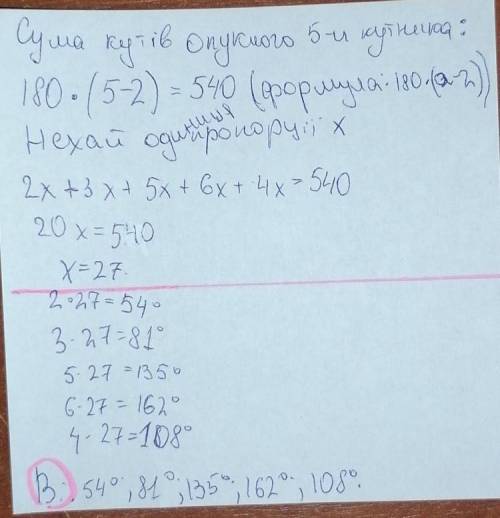 Сума кутів опуклого 5-и кутника:
180·(5-2)=540 (формула: 180·(a-2))
Нехай одиниця пропорції x
2x+3x+5x+6x+4x=540
20x=540
x=27.
2·27=54°
3·27=81°
5·27=135°
6·27=162°
4·27=108°
В: 54°; 81°; 135°; 162°; 108°.